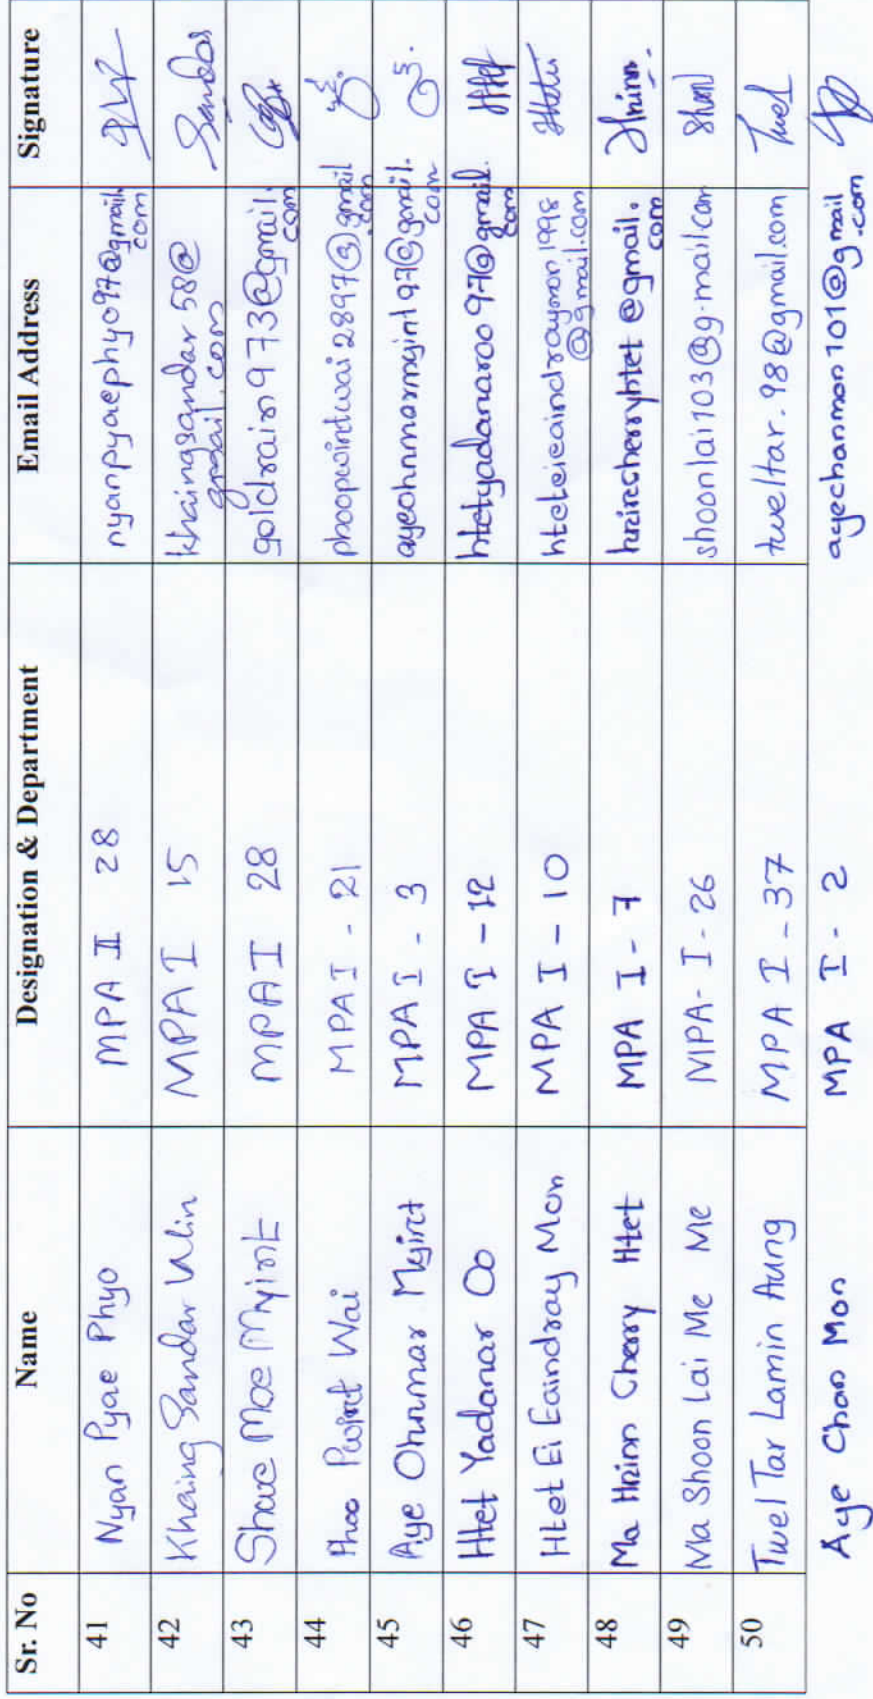 Sr. No Name Designation & Department Email Address Signature
41 Nyan Pyae Phyo MPA II 28 nyanpyaephyo97@gmail.com
42 Khaing Sandar Win MPA I 15 khaingsandar58@gmail.com Sandar
43 Moe Myint MPA I 28 goldrain973@gmail.com
44 Phoo Pwint Wai MPA I - 21 phoopwintwai2897@gmail.com
45 Aye Ohnmar Myint MPA I - 3 ayeohnmarmyint97@gmail.com
46 Htet Yadanar Oo MPA I - 12 htetyadanaroo97@gmail.com Htet
47 Htet Ei Eaindray Mon MPA I - 10 hteteieaindraymon1998@gmail.com
48 Ma Hninn Cherry Htet MPA I - 7 hninncherryhtet@gmail.com Hninn
49 Ma Shoon Lai Me Me MPA- I - 26 shoonlai103@g.mail.com Shoon
50 Twel Tar Lamin Aung MPA I - 37 tweltar.98@gmail.com Twel
Aye Chan Mon MPA I - 2 ayechanmon101@gmail.com